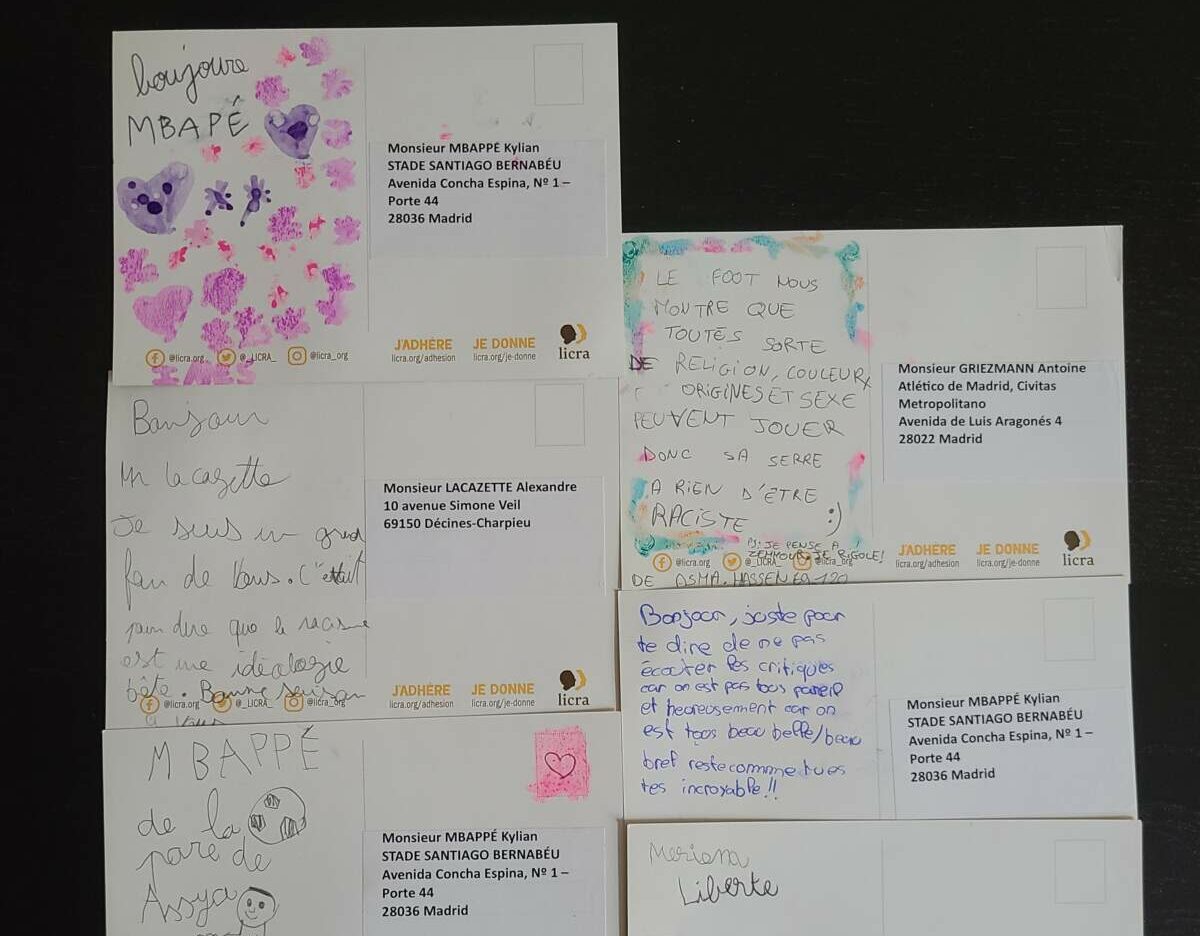 boujoure
MBAPÉ
Monsieur MBAPPÉ Kylian
STADE SANTIAGO BERNABÉU
Avenida Concha Espina, Nº 1 –
Porte 44
28036 Madrid
@licra.org @_LICRA_ @licra_org
J'ADHÈRE JE DONNE
licra.org/adhesion licra.org/je-donne
licra
Bonjour
Mr lacazette
Je suis un grand
fan de Vous. C'ettait
pour dire que le racisme
est une idéologie
bête. Bonne saison
à vous
Monsieur LACAZETTE Alexandre
10 avenue Simone Veil
69150 Décines-Charpieu
@licra.org @_LICRA_ @licra_org
J'ADHÈRE JE DONNE
licra.org/adhesion licra.org/je-donne
licra
MBAPPÉ
de la
pare de
Assya
Monsieur MBAPPÉ Kylian
STADE SANTIAGO BERNABÉU
Avenida Concha Espina, Nº 1 –
Porte 44
28036 Madrid
LE FOOT NOUS
MONTRE QUE
TOUTES SORTE
DE RELIGION, COULEUR,
ORIGINES ET SEXE
PEUVENT JOUER
DONC SA SERRE
A RIEN D'ÊTRE
RACISTE :)
PS: JE PENSE A
ZEMMOUR. JE RIGOLE!
DE ASMA. HASSEN
Monsieur GRIEZMANN Antoine
Atlético de Madrid, Civitas
Metropolitano
Avenida de Luis Aragonés 4
28022 Madrid
@licra.org @_LICRA_ @licra_org
J'ADHÈRE JE DONNE
licra.org/adhesion licra.org/je-donne
licra
Bonjour, juste pour
te dire de ne pas
écouter les critiques
car on est pas tous pareil
et heureusement car on
est tous beau belle/beau
bref reste comme tu es
tes incroyable!!
Monsieur MBAPPÉ Kylian
STADE SANTIAGO BERNABÉU
Avenida Concha Espina, Nº 1 –
Porte 44
28036 Madrid
Meriam
Liberte